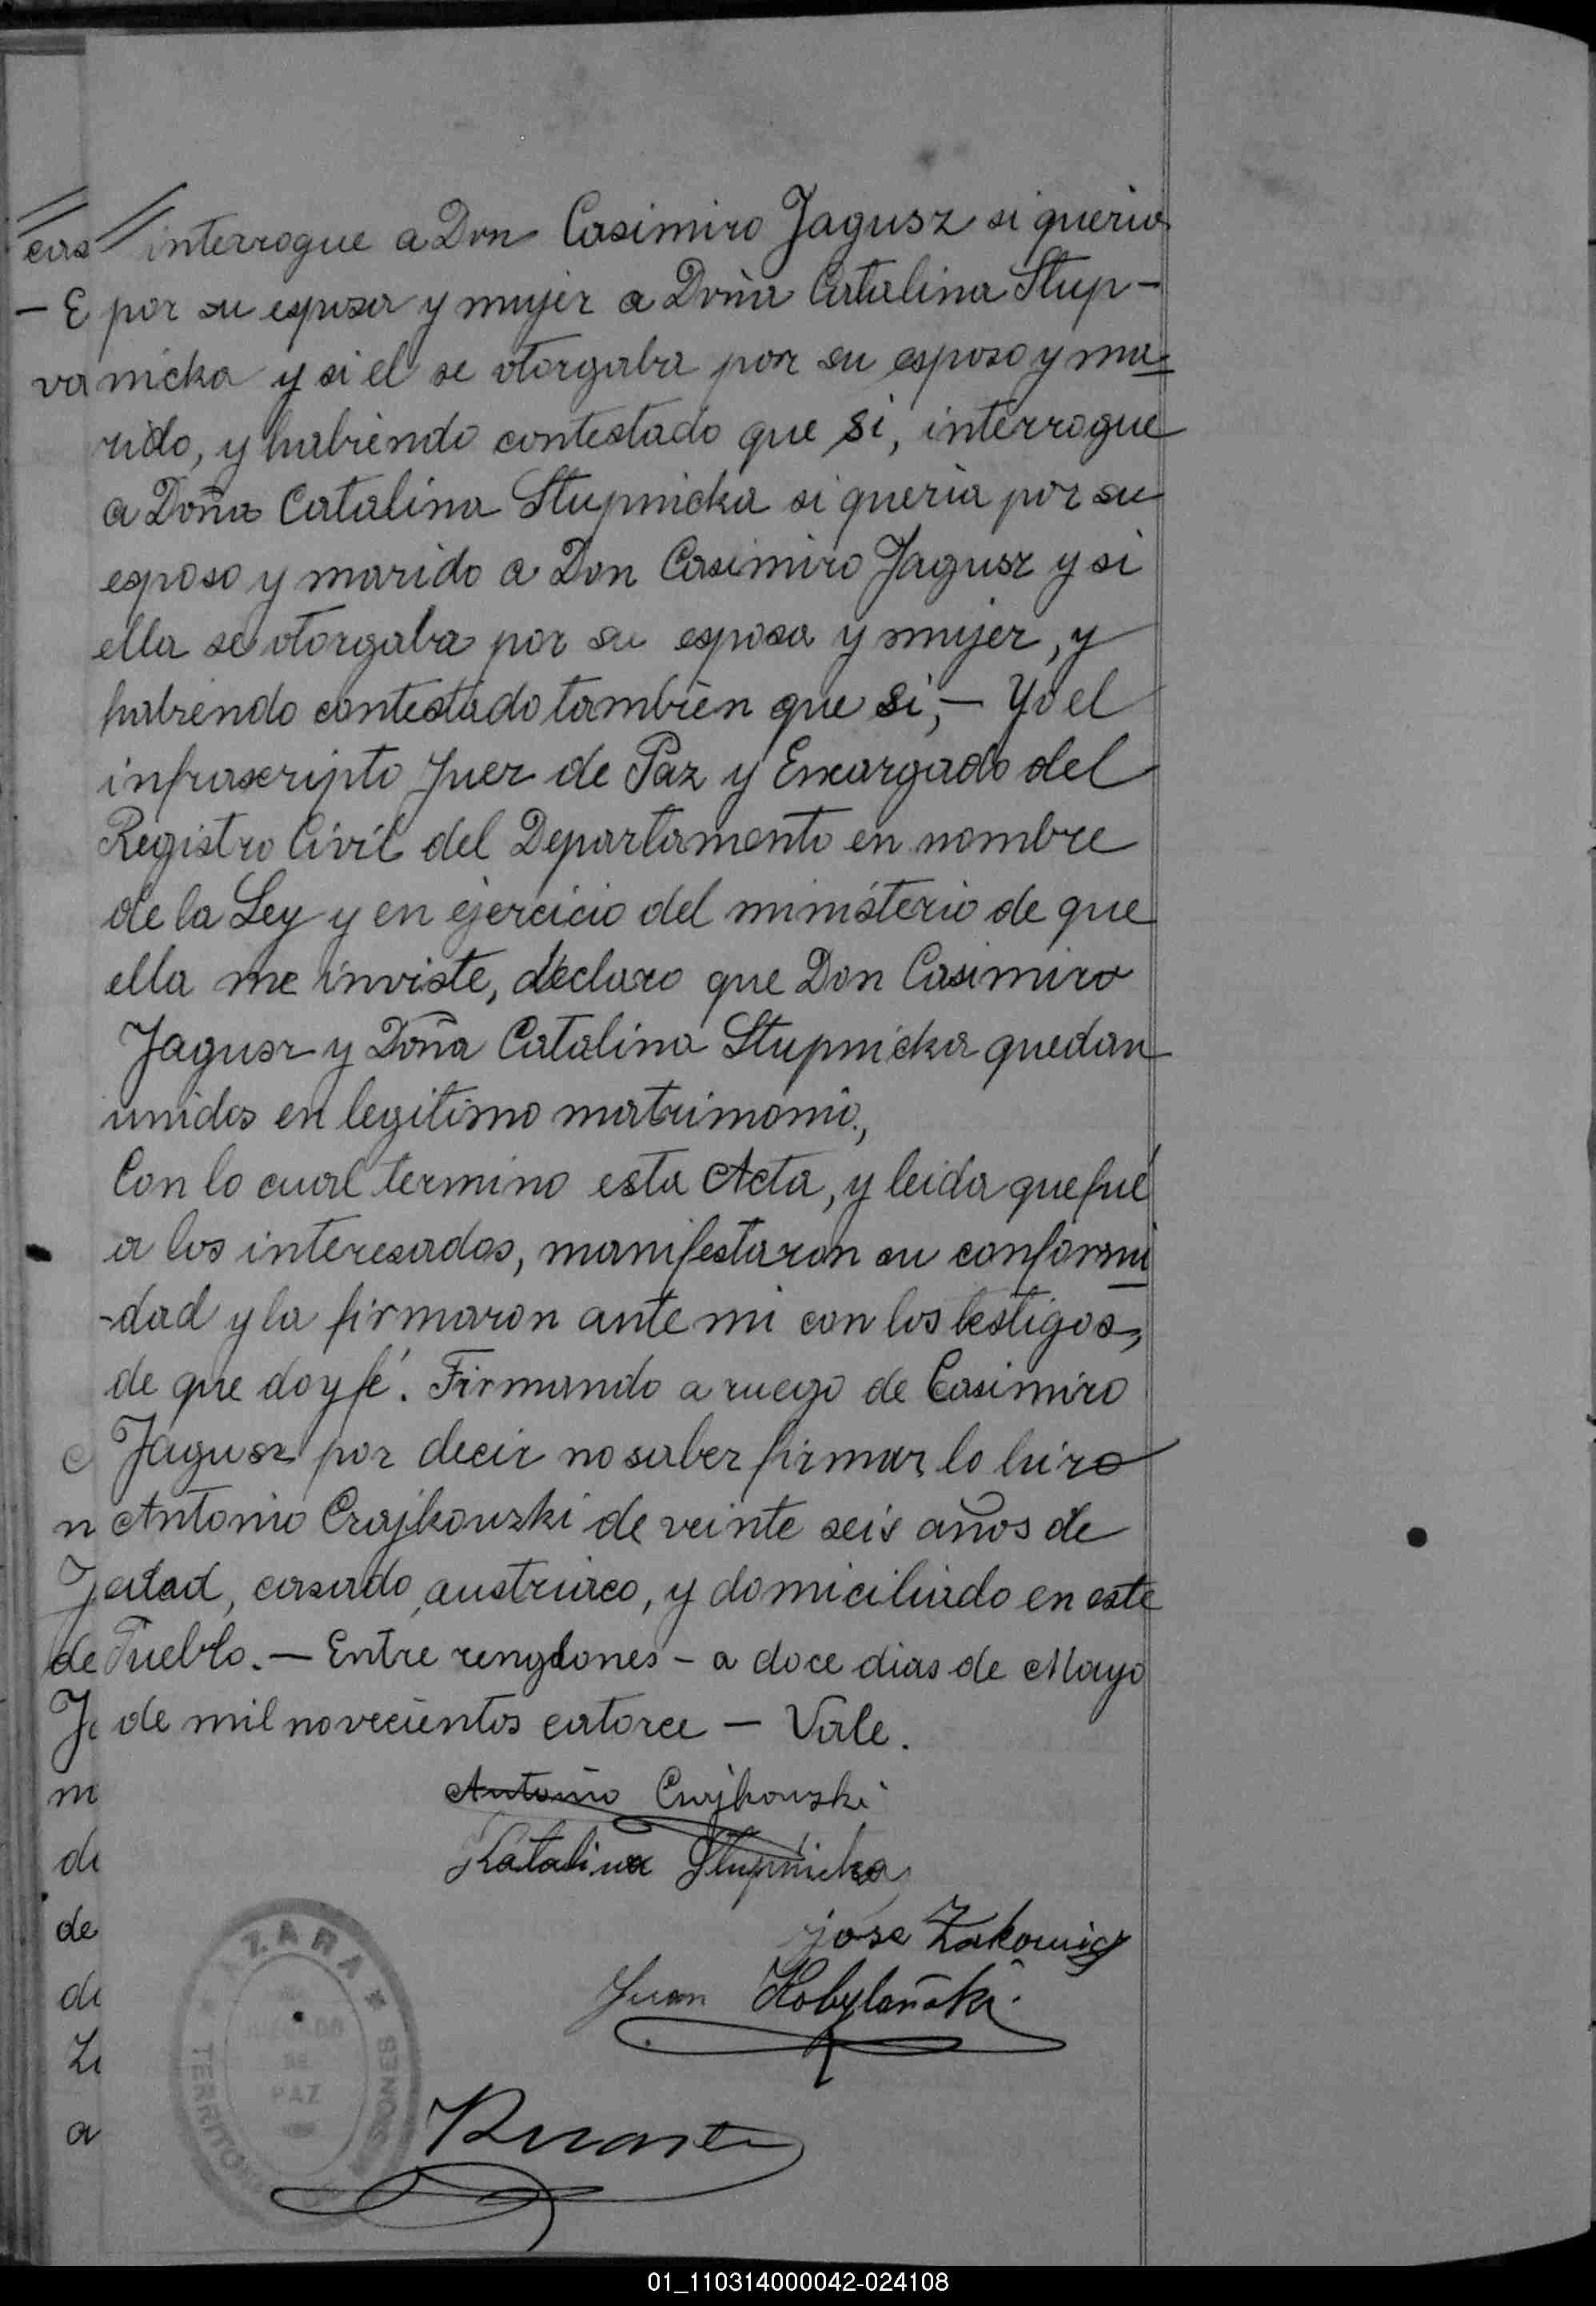 cas // interrogue a Don Casimiro Jagusz si queria
- E por su esposa y mujer a Doña Catalina Stup-
va nicka y si el se otorgaba por su esposo y ma-
rido, y habiendo contestado que si, interrogue
a Doña Catalina Stupnicka si queria por su
esposo y marido a Don Casimiro Jagusz y si
ella se otorgaba por su esposa y mujer, y
habiendo contestado tambien que si,- Yo el
infrascripto Juez de Paz y Encargado del
Registro Civil del Departamento en nombre
de la Ley y en ejercicio del ministerio de que
ella me inviste, declaro que Don Casimiro
Jagusz y Doña Catalina Stupnicka quedan
unidos en legitimo matrimonio.,
Con lo cual termino esta Acta, y leida que fué
a los interesados, manifestaron su conformi
-dad y la firmaron ante mi con los testigos,
de que doy fé. Firmando a ruego de Casimiro
c Jagusz por decir no saber firmar lo hizo
n Antonio Czajkowski de veinte seis años de
J edad, casado, austriaco, y domiciliado en este
de Pueblo.- Entre renglones - a doce dias de Mayo
Je de mil novecientos catorce - Vale.
m Antonio Czajkowski
di Katalina Stupnicka
de jose Zakowicz
di Juan Kobylański.
Zi
a Duarte
AZARA
TERRITORIO
MISIONES
JUZGADO
DE
PAZ
01_110314000042-024108